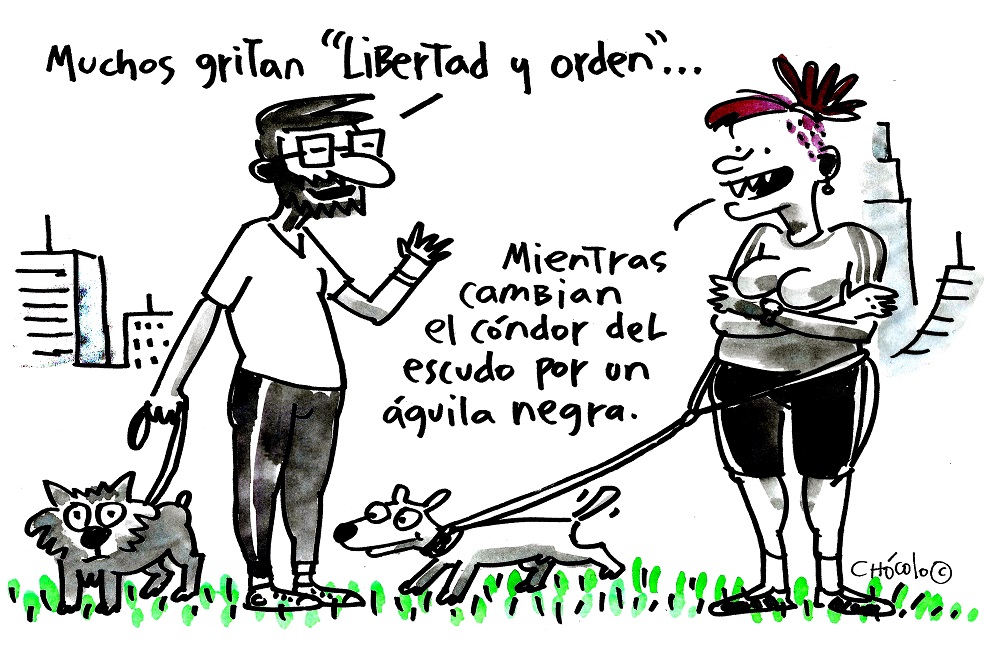 Muchos gritan "Libertad y orden"...
Mientras
cambian
el cóndor del
escudo por un
águila negra.
CHÓCOLO ©